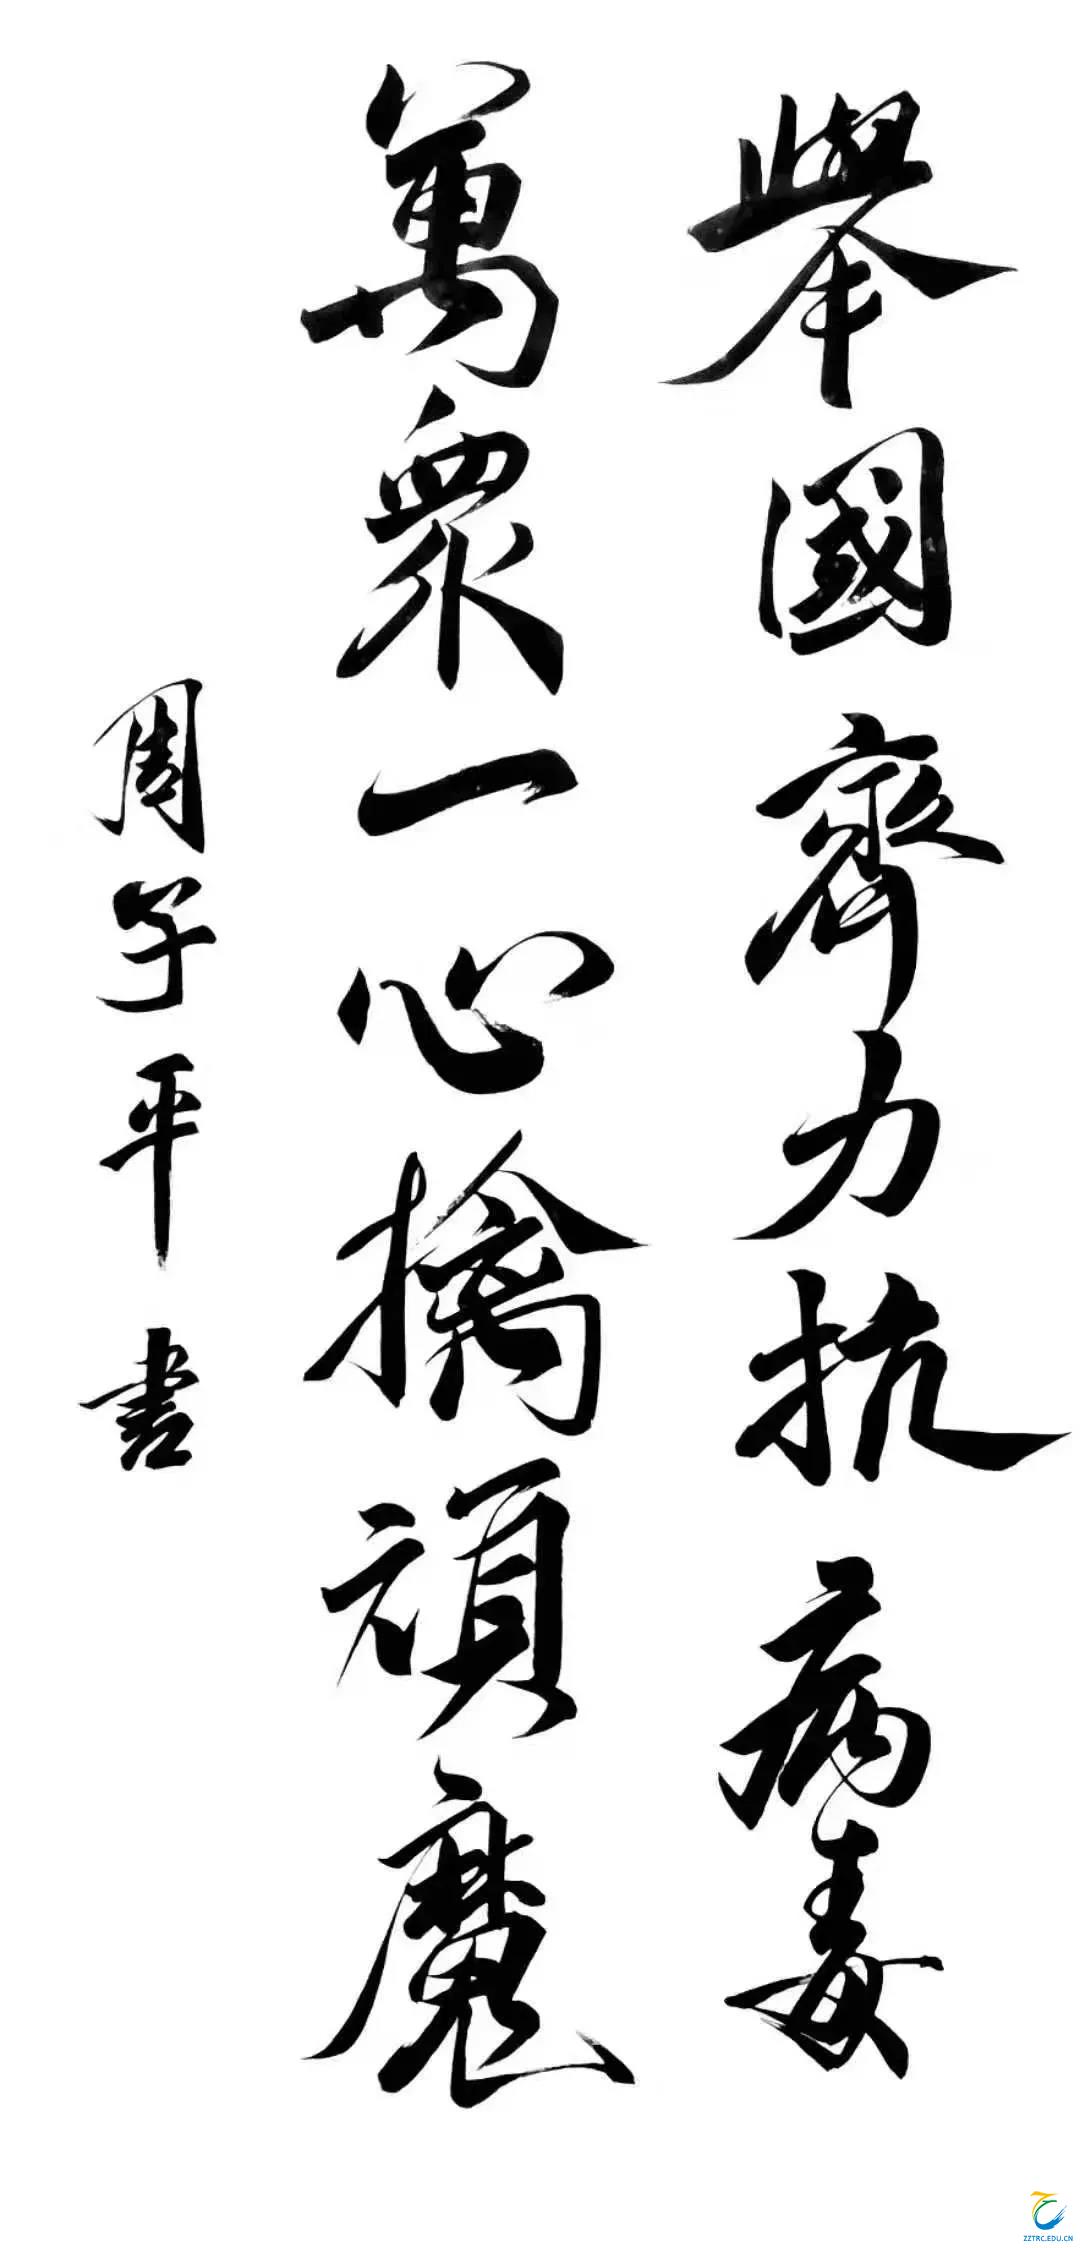 舉國齊力抗病毒
萬衆一心擒頑魔
周子平書
ZZTRC.EDU.CN